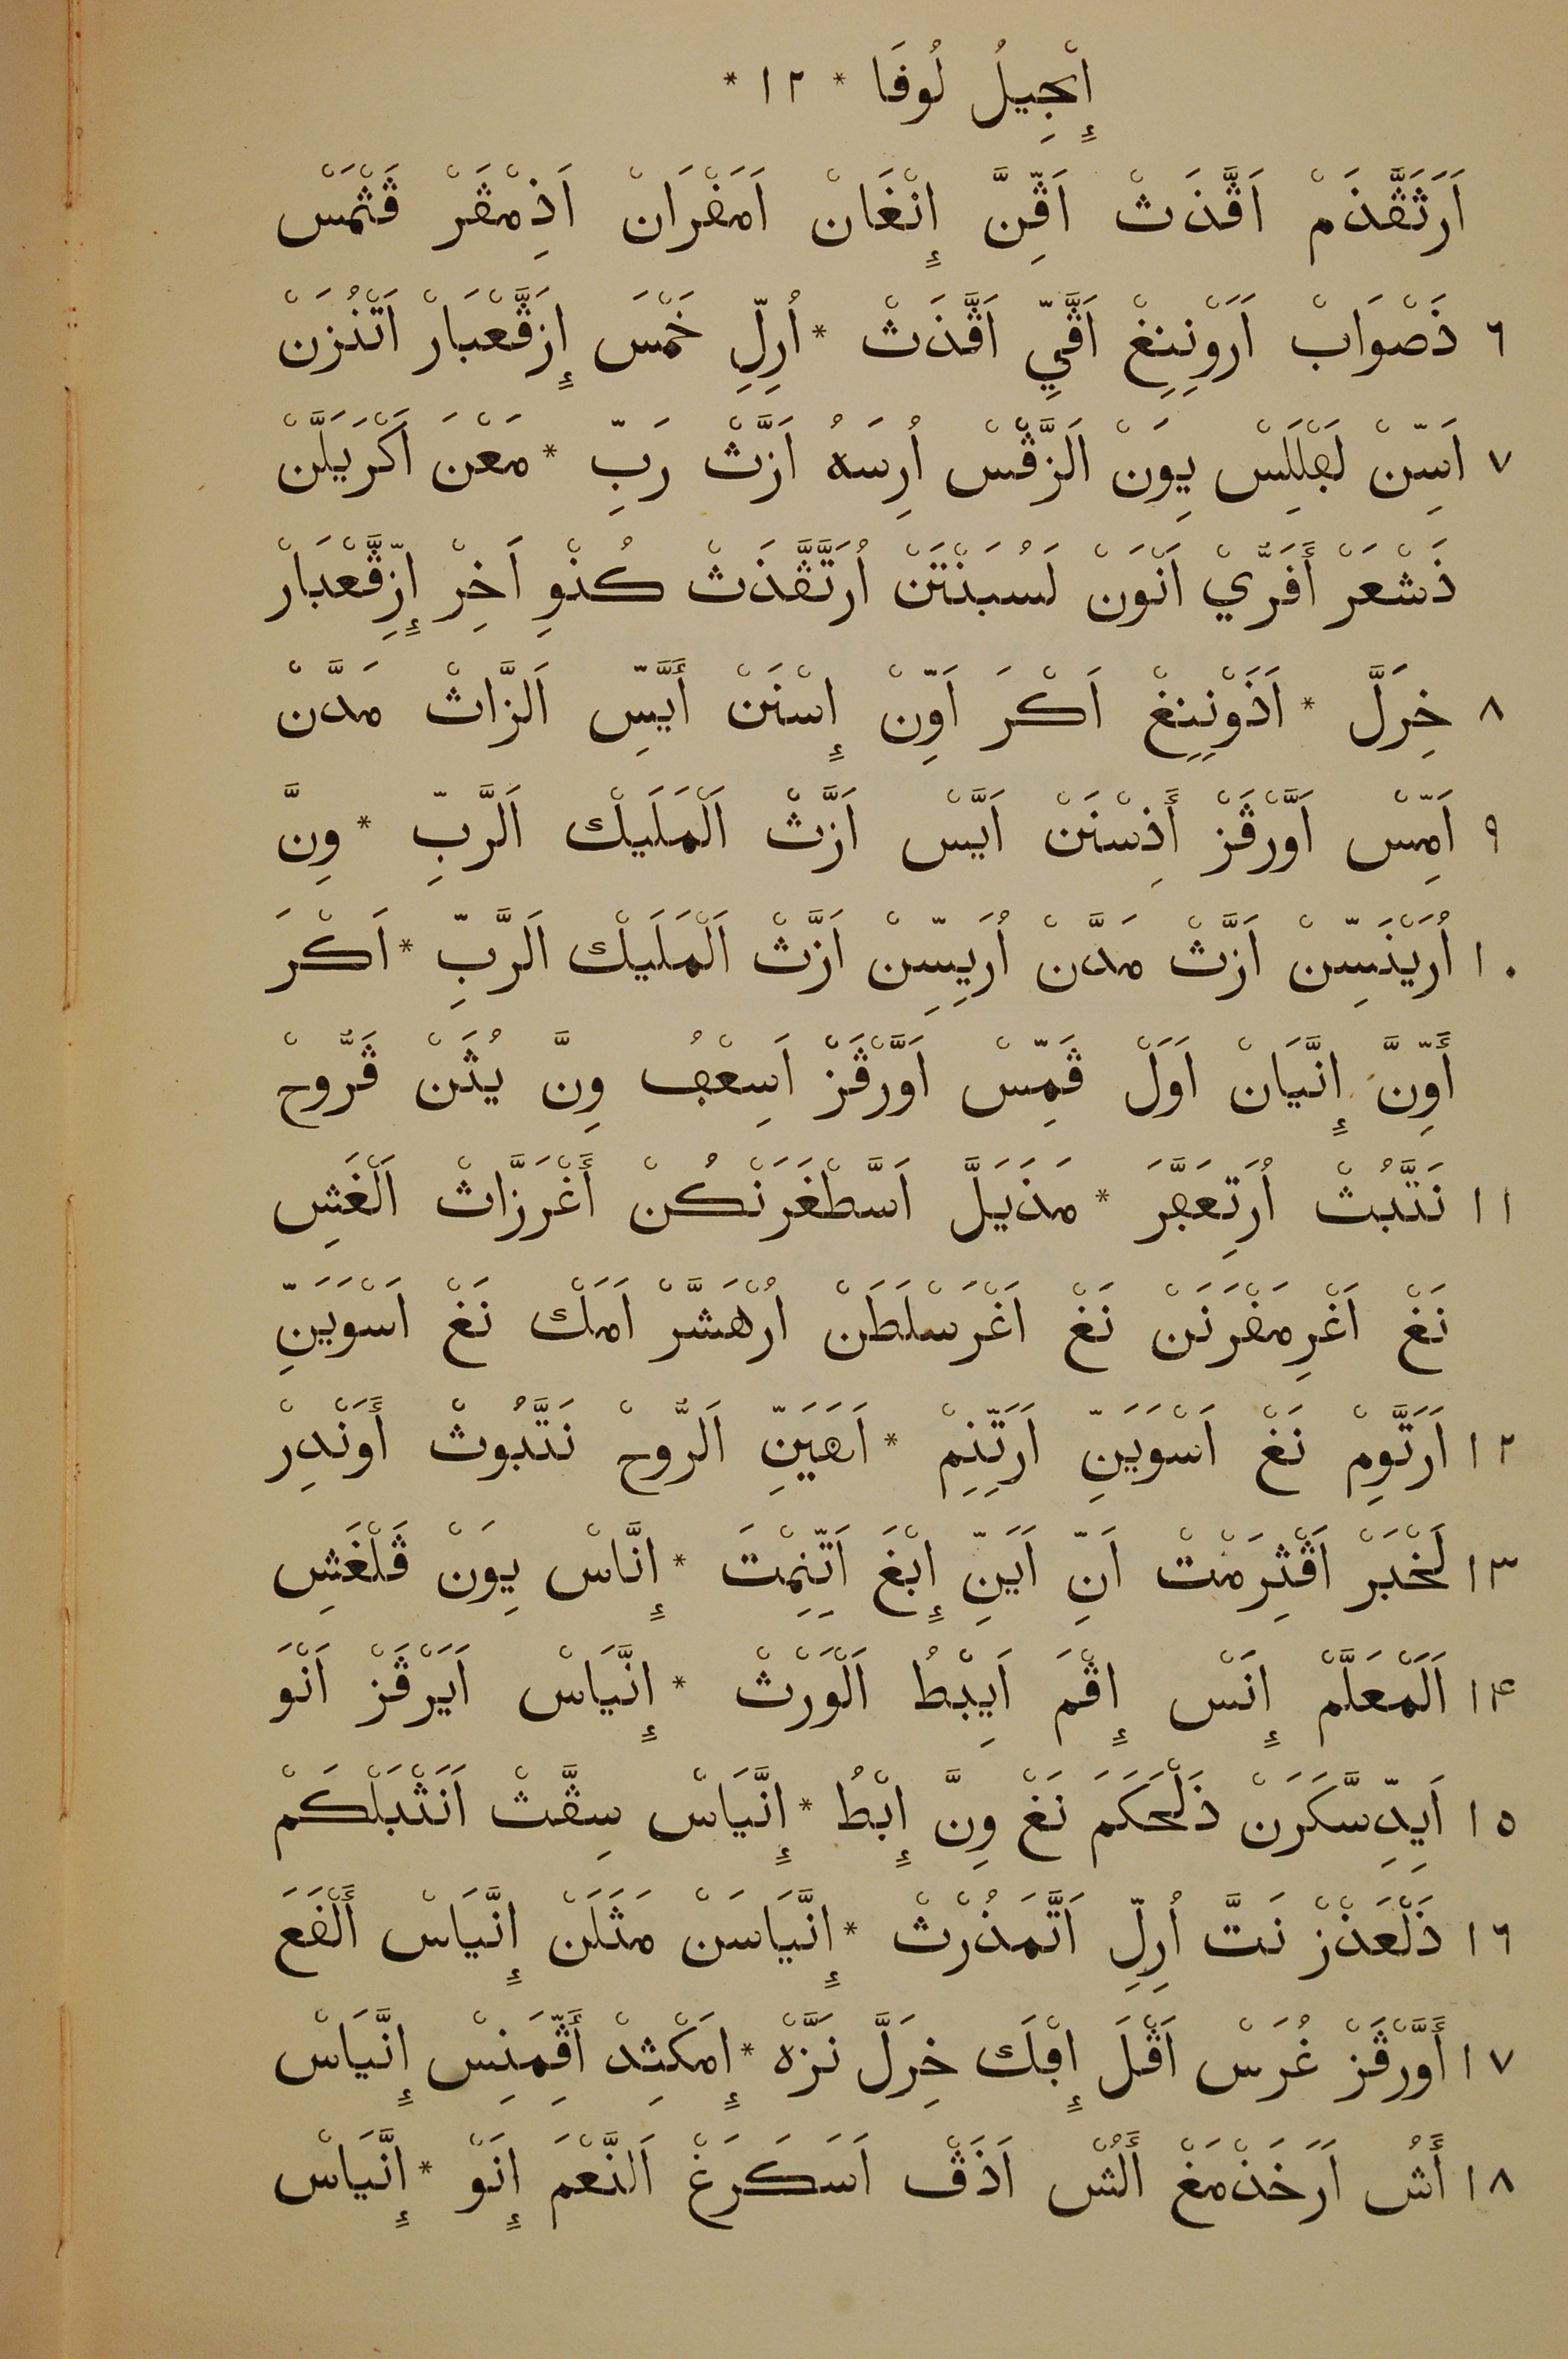 إِنْجِيلُ لُوقَا * ١٢ *
اَرَثَڤَّذَمْ اَڤَّذَثْ اَڤِّنَّ إِنْغَانْ اَمَقْرَانْ اَذِمْقَرْ ڤَثْمَسْ
٦ ذَصْوَابْ اَرَوْنِنِغْ اَڤَّيِّ اَڤَّذَثْ * اُرِلِّ خَمْسَ إِزَڤَّعْبَارْ اَتْنُزَنْ
٧ اَسِّنْ لَجْلِلَسْ يِوَنْ اَلزَّڤْسْ اُرِسَهُ اَزَّثْ رَبِّ * مَعْنَ اَكْرَيَلَّنْ
ذَشْعَرْ أَفَرُّيْ اَنْوَنْ لَسُبَنْتَنْ اُرَتَّڤَّذَثْ كُنْوِ اَخِرْ إِزِّڤَّعْبَارْ
٨ خِرَلَّ * اَذَوْنِنِغْ اَكْرَ اَوِّنْ إِسْنَنْ أَيَّسِّ اَلزَّاثْ مَدَّنْ
٩ اَمِّسْ اَوَّرْڤَزْ أَذِسْنَنْ اَيَّسْ اَزَّثْ اَلْمَلَيْك اَلرَّبِّ * وِنَّ
١٠ اُرَيَنْسِّنْ اَزَّثْ مَدَّنْ اُرَيِسِّنْ اَزَّثْ اَلْمَلَيْك اَلرَّبِّ * اَكْرَ
أَوِّنَّ إِنَّيَانْ اَوَلْ ڤَمِّسْ اَوَّرْڤَزْ اَسِعْفُ وِنَّ يُثَنْ ڤَرُّوحْ
١١ نَتَّدُبْثْ اُرَتِعَفَّرَ * مَذَيَلَّ اَسَّطْغَرَنْكُنْ أَغْرَزَّاثْ اَلْغَشِ
نَغْ اَغْرِمَقْرَنَنْ نَغْ اَغْرَسْلَطَنْ اُرْهَشَّرْ اَمَكْ نَغْ اَسْوَيَنِّ
١٢ اَرَتَّوِمْ نَغْ اَسْوَيَنِّ اَرَتِّنِمْ * اَهَيَنِّ اَلرُّوحْ نَتَّدُبُوثْ أَوَنْدِرْ
١٣ لَخْبَرْ اَڤْثِرَمْتْ اَنِّ اَيَنِّ إِبْغَ اَتِّنِمْتَ * إِنَّاسْ يِوَنْ ڤَلْغَشِ
١٤ اَلَمْعَلَّمْ إِنَسْ إِڤْمَ اَيِبْطُ اَلْوَرْثْ * إِنَّيَاسْ اَيَرْڤَزْ اَنْوَ
١٥ اَيِدِّسَّكَرَنْ ذَلْحَكَمَ نَغْ وِنَّ إِبْطُ * إِنَّيَاسْ سِڤَّثْ اَنَثْبَلْكَمْ
١٦ ذَلْعَذْزْ نَتَّ اُرِلِّ اَتَّمَذُرْثْ * إِنَّيَاسَنْ مَثَلَنْ إِنَّيَاسْ أَلْفَعَ
١٧ أَوَّرْڤَزْ غُرَسْ اَڤْلَ إِفْكَ خِرَلَّ نَزَّهْ * إِمَكْثِدْ أَڤِّمَنِسْ إِنَّيَاسْ
١٨ أَشُ اَرَخَذْمَغْ أَلُشْ اَذَڤْ اَسَكَرَغْ اَلنَّعْمَ إِنَوْ * إِنَّيَاسْ